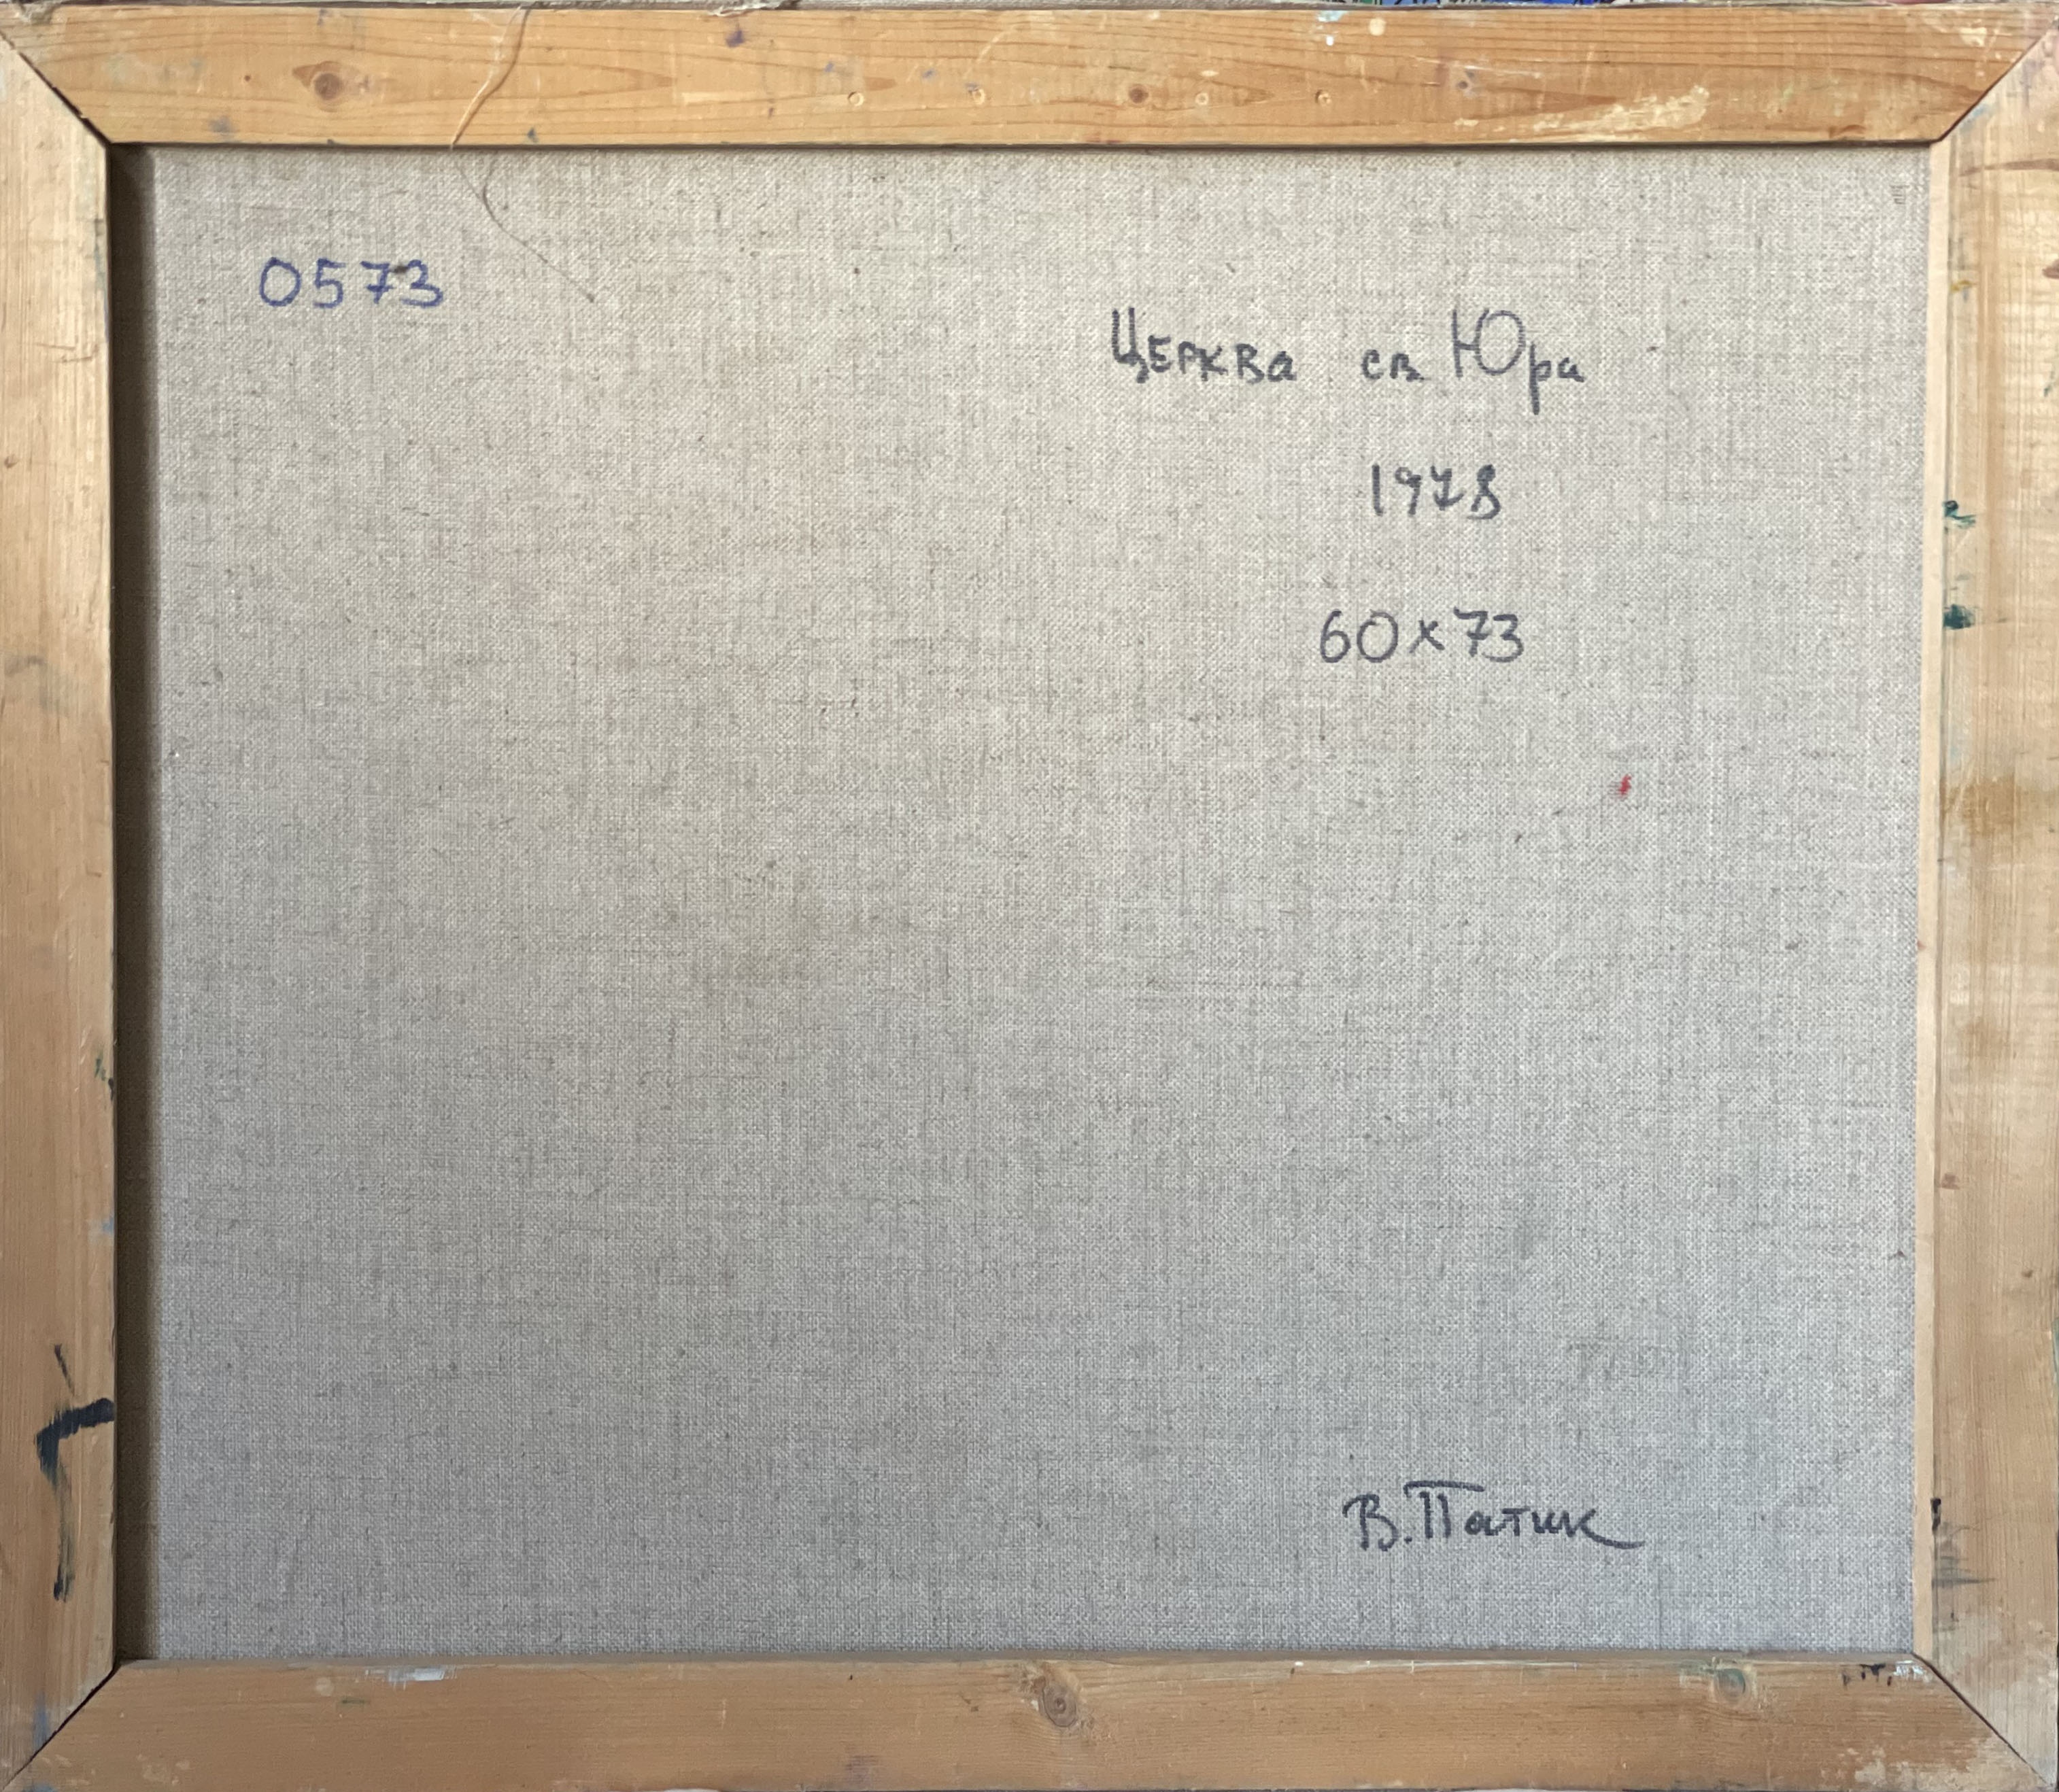 0573
Церква св Юра
1978
60x73
В. Патик